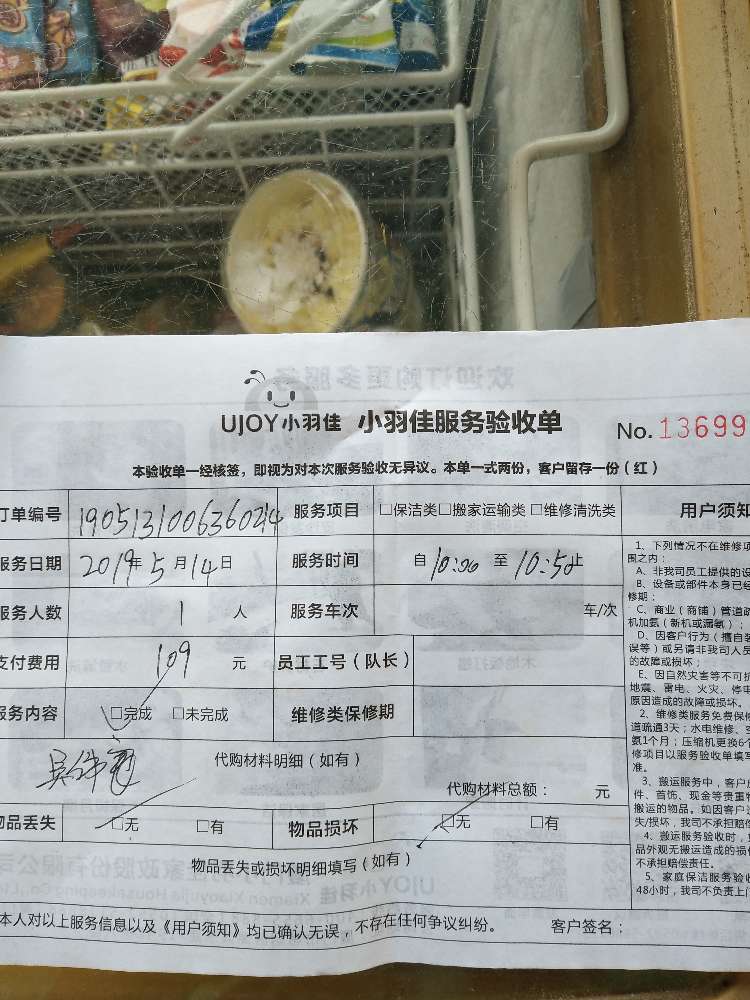 UJOY小羽佳 小羽佳服务验收单 No. 13699
本验收单一经核签，即视为对本次服务验收无异议。本单一式两份，客户留存一份（红）
订单编号 服务项目 □保洁类□搬家运输类□维修清洗类 用户须知
服务日期 2019年5月14日 服务时间 自10:00 至10:50止
服务人数 1 人 服务车次 车/次
支付费用 109 元 员工工号（队长）
服务内容 □完成 □未完成 维修类保修期
代购材料明细（如有）
代购材料总额： 元
物品丢失 □无 □有 物品损坏 □无 □有
物品丢失或损坏明细填写（如有）
本人对以上服务信息以及《用户须知》均已确认无误，不存在任何争议纠纷。 客户签名：
1、下列情况不在维修项
围之内：
A、非我司员工提供的设
B、设备或部件本身已经
修期；
C、商业（商铺）管道疏
机加氨（新机或漏氨）；
D、因客户行为（擅自装
误等）或另请非我司人员
的故障或损坏；
E、因自然灾害等不可抗
地震、雷电、火灾、停电
原因造成的故障或损坏。
2、维修类服务免费保修
道疏通3天；水电维修、空
氨1个月；压缩机更换6个
修项目以服务验收单填写
准。
3、搬运服务中，客户应
件、首饰、现金等贵重物
搬运的物品。如因客户
失/损坏，我司不承担赔偿
4、搬运服务验收时，
品外观无搬运造成的损
不承担赔偿责任。
5、家庭保洁服务验收
48小时，我司不负责上门